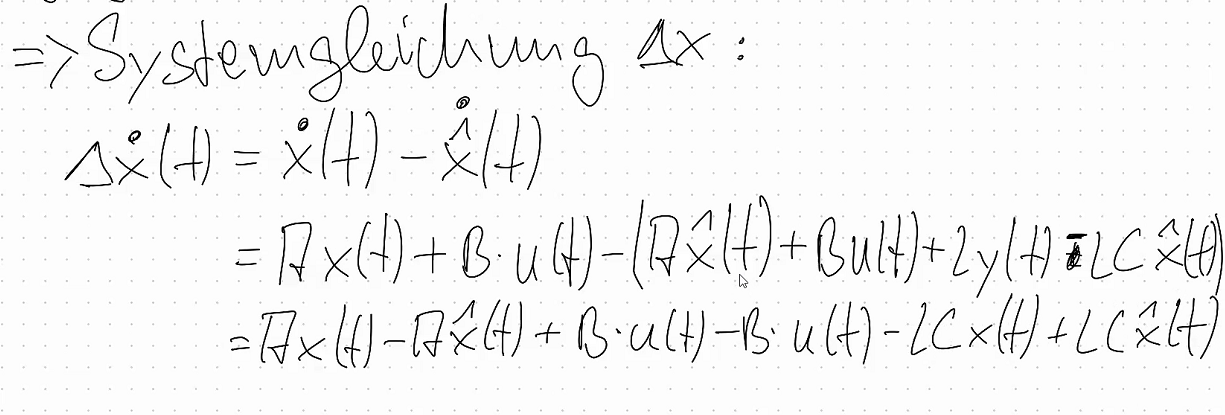 => Systemgleichung Δx :
Δẋ(t) = ẋ(t) - x̂̇(t)
= A x(t) + B · u(t) - (A x̂(t) + B u(t) + L y(t) - L C x̂(t))
= A x(t) - A x̂(t) + B · u(t) - B · u(t) - L C x(t) + L C x̂(t)